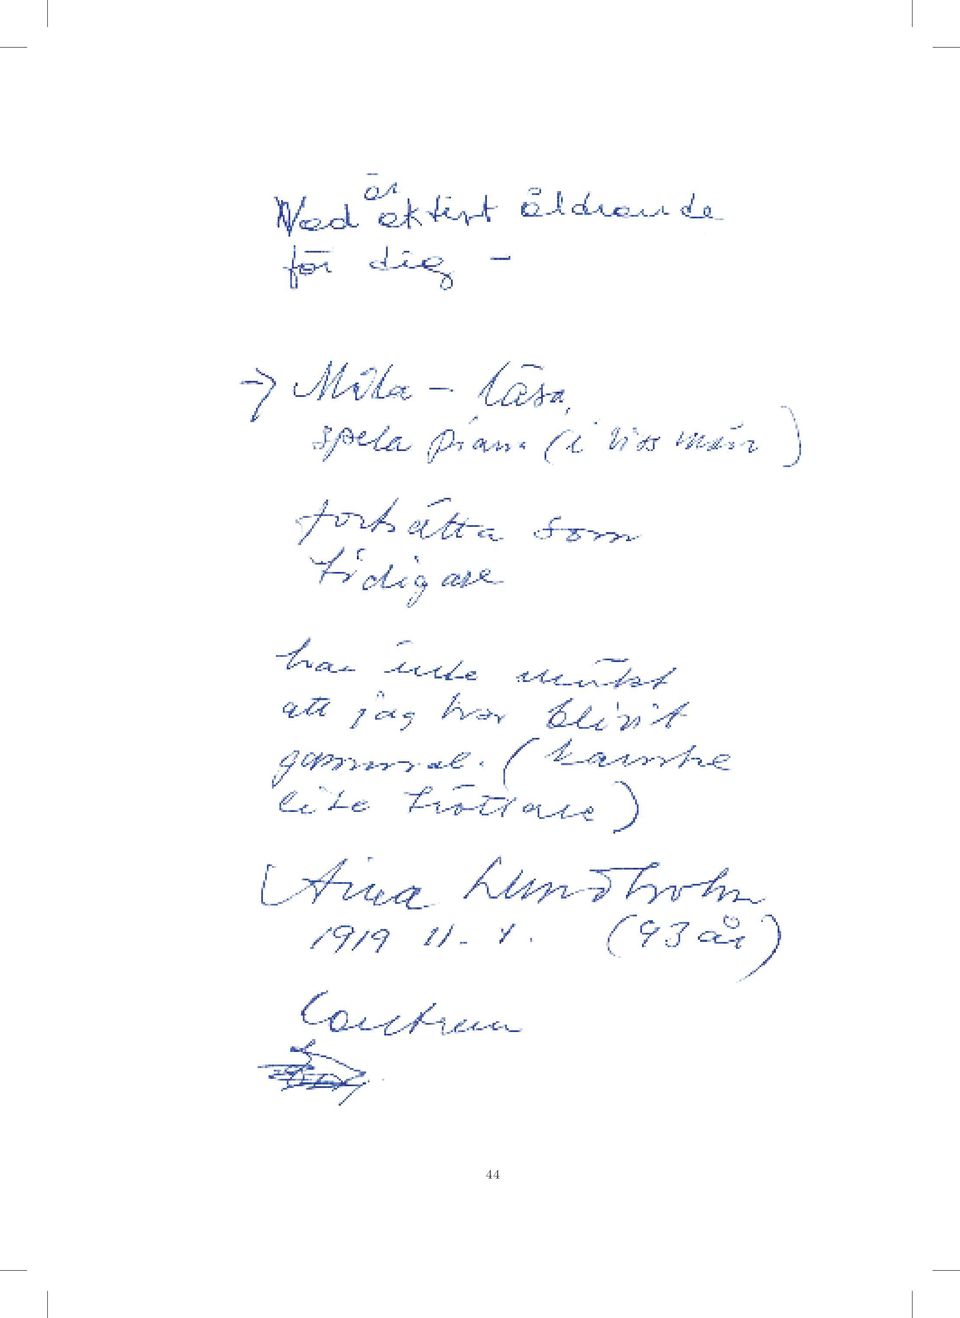 Vad är aktivt åldrande
för dig -
→ Måla - läsa,
spela piano (i viss mån)
fortsätta som
tidigare
har inte märkt
att jag har blivit
gammal. (kanske
lite tröttare)
Aina Lundholm
1919 11 - 1. (93 år)
Centrum
44